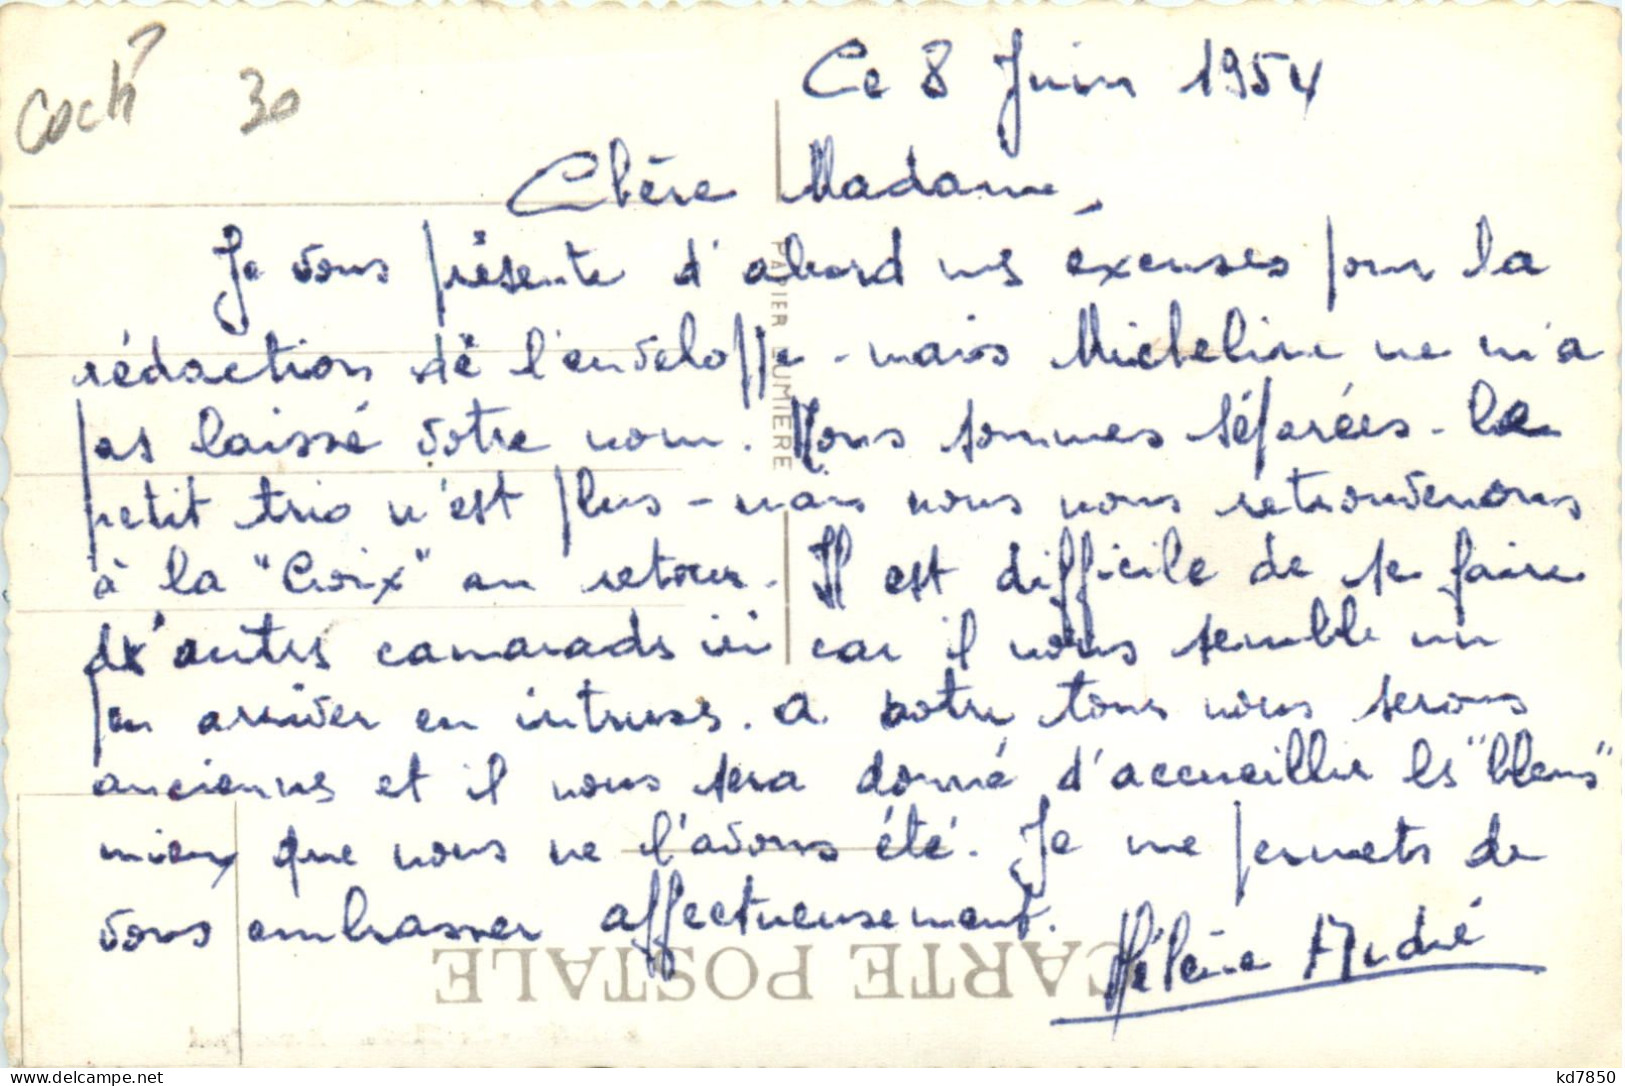 Coch 30
Ce 8 Juin 1954
Chère Madame,
Je vous présente d'abord mes éxcuses pour la
rédaction de l'enveloppe - mais Micheline ne m'a
pas laissé votre nom. Nous sommes séparées - le
petit trio n'est plus - mais nous nous retrouverons
à la "Croix" au retour. Il est difficile de se faire
d'autres camarades ici car il nous semble un
peu arriver en intruses. A notre tour nous serons
anciennes et il nous sera donné d'accueillir les "bleus"
mieux que nous ne l'avons été. Je me permets de
vous embrasser affectueusement.
Hélène André
PAPIER LUMIERE
CARTE POSTALE
kd7850